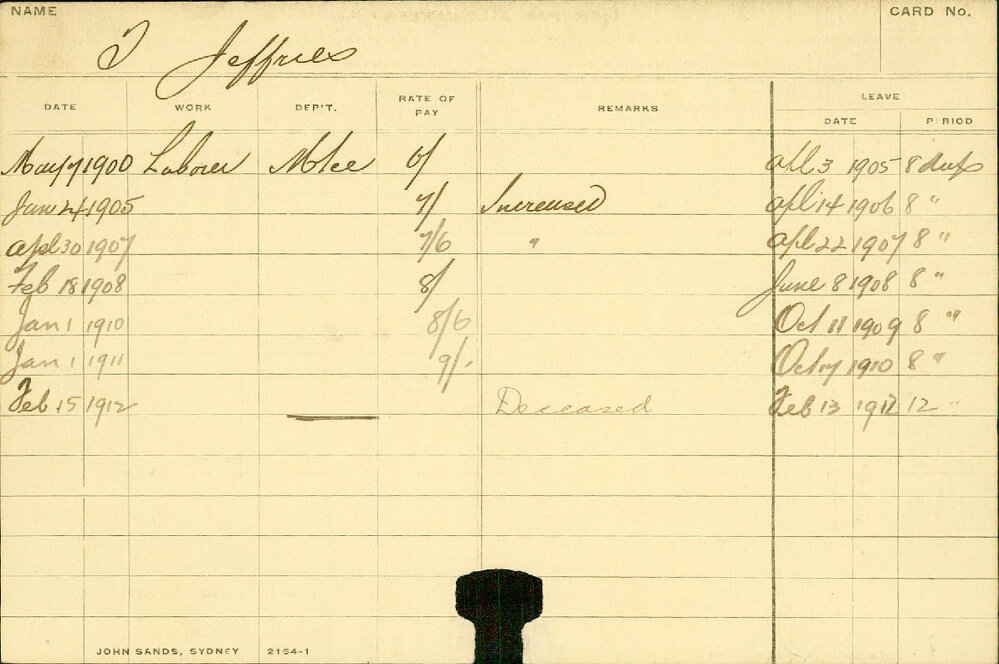 NAME CARD No.
J Jeffries
DATE WORK DEP'T. RATE OF PAY REMARKS LEAVE
DATE PERIOD
May 7 1900 Laborer 6/ apl 3 1905 8 days
Jan 24 1905 7/ Increased apl 14 1906 8 "
apl 30 1907 7/6 " apl 22 1907 8 "
Feb 18 1908 8/ June 8 1908 8 "
Jan 1 1910 8/6 Oct 11 1909 8 "
Jan 1 1911 9/- Oct 17 1910 8 "
Feb 15 1912 Deceased Feb 13 1912 12 "
JOHN SANDS, SYDNEY 2154-1